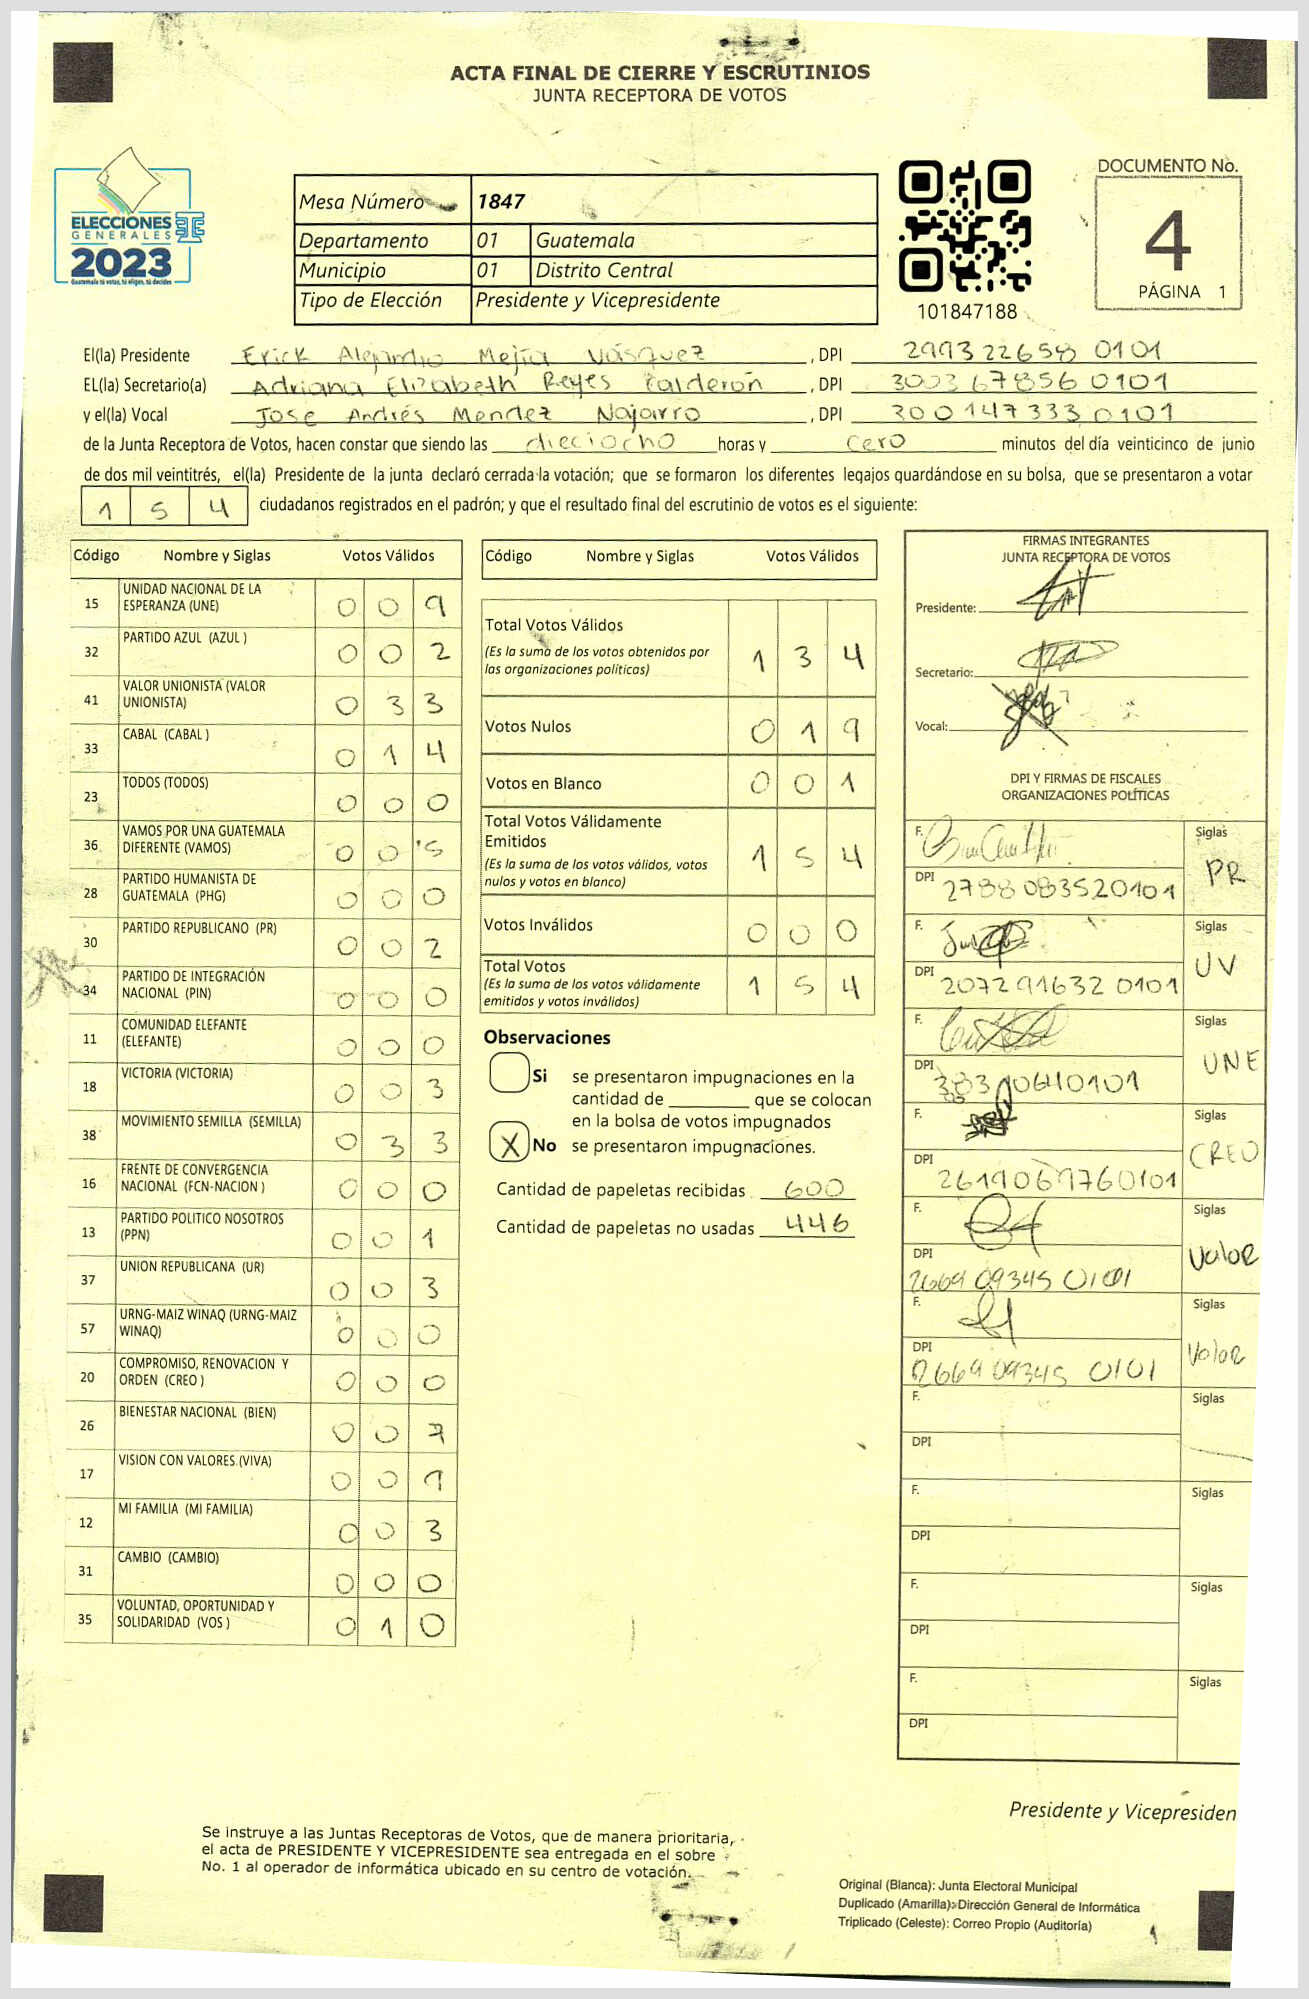 ACTA FINAL DE CIERRE Y ESCRUTINIOS
JUNTA RECEPTORA DE VOTOS
ELECCIONES
GENERALES
2023
Guatemala tú votas, tú eliges, tú decides
Mesa Número 1847
Departamento 01 Guatemala
Municipio 01 Distrito Central
Tipo de Elección Presidente y Vicepresidente
101847188
DOCUMENTO No.
4
PÁGINA 1
El(la) Presidente Erick Alejandro Mejía Vásquez, DPI 299322658 0101
EL(la) Secretario(a) Adriana Elizabeth Reyes Calderón, DPI 300367856 0101
y el(la) Vocal Jose Andrés Mendez Najarro, DPI 300147333 0101
de la Junta Receptora de Votos, hacen constar que siendo las dieciocho horas y cero minutos del día veinticinco de junio
de dos mil veintitrés, el(la) Presidente de la junta declaró cerrada la votación; que se formaron los diferentes legajos quardándose en su bolsa, que se presentaron a votar
1 5 4 ciudadanos registrados en el padrón; y que el resultado final del escrutinio de votos es el siguiente:
Código Nombre y Siglas Votos Válidos
15 UNIDAD NACIONAL DE LA ESPERANZA (UNE) 0 0 9
32 PARTIDO AZUL (AZUL ) 0 0 2
41 VALOR UNIONISTA (VALOR UNIONISTA) 0 3 3
33 CABAL (CABAL ) 0 1 4
23 TODOS (TODOS) 0 0 0
36 VAMOS POR UNA GUATEMALA DIFERENTE (VAMOS) 0 0 5
28 PARTIDO HUMANISTA DE GUATEMALA (PHG) 0 0 0
30 PARTIDO REPUBLICANO (PR) 0 0 2
34 PARTIDO DE INTEGRACIÓN NACIONAL (PIN) 0 0 0
11 COMUNIDAD ELEFANTE (ELEFANTE) 0 0 0
18 VICTORIA (VICTORIA) 0 0 3
38 MOVIMIENTO SEMILLA (SEMILLA) 0 3 3
16 FRENTE DE CONVERGENCIA NACIONAL (FCN-NACION ) 0 0 0
13 PARTIDO POLITICO NOSOTROS (PPN) 0 0 1
37 UNION REPUBLICANA (UR) 0 0 3
57 URNG-MAIZ WINAQ (URNG-MAIZ WINAQ) 0 0 0
20 COMPROMISO, RENOVACION Y ORDEN (CREO ) 0 0 0
26 BIENESTAR NACIONAL (BIEN) 0 0 7
17 VISION CON VALORES (VIVA) 0 0 9
12 MI FAMILIA (MI FAMILIA) 0 0 3
31 CAMBIO (CAMBIO) 0 0 0
35 VOLUNTAD, OPORTUNIDAD Y SOLIDARIDAD (VOS ) 0 1 0
Código Nombre y Siglas Votos Válidos
Total Votos Válidos 1 3 4
(Es la suma de los votos obtenidos por
las organizaciones políticas)
Votos Nulos 0 1 9
Votos en Blanco 0 0 1
Total Votos Válidamente
Emitidos 1 5 4
(Es la suma de los votos válidos, votos
nulos y votos en blanco)
Votos Inválidos 0 0 0
Total Votos 1 5 4
(Es la suma de los votos válidamente
emitidos y votos inválidos)
Observaciones
Si se presentaron impugnaciones en la
cantidad de ________ que se colocan
en la bolsa de votos impugnados
X No se presentaron impugnaciones.
Cantidad de papeletas recibidas 600
Cantidad de papeletas no usadas 446
FIRMAS INTEGRANTES
JUNTA RECEPTORA DE VOTOS
Presidente:
Secretario:
Vocal:
DPI Y FIRMAS DE FISCALES
ORGANIZACIONES POLÍTICAS
F. Siglas PR
DPI 2788083520101
F. Siglas UV
DPI 207291632 0101
F. Siglas UNE
DPI
F. Siglas CREO
DPI 2619069760101
F. Siglas Valor
DPI 2669 09345 0101
F. Siglas Valor
DPI 2669 09345 0101
F. Siglas
DPI
F. Siglas
DPI
F. Siglas
DPI
F. Siglas
DPI
Presidente y Vicepresiden
Se instruye a las Juntas Receptoras de Votos, que de manera prioritaria,
el acta de PRESIDENTE Y VICEPRESIDENTE sea entregada en el sobre
No. 1 al operador de informática ubicado en su centro de votación.
Original (Blanca): Junta Electoral Municipal
Duplicado (Amarilla): Dirección General de Informática
Triplicado (Celeste): Correo Propio (Auditoría)